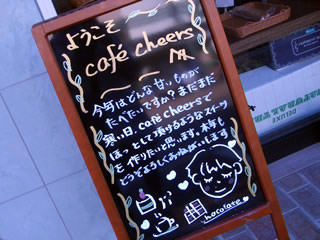 ようこそ
café cheers
今年はどんな甘いものが
たべたいですか?まだまだ
寒い日、café cheersで
ほっとして頂けるようなスイーツ
を作りたいと思います。本年も
どうぞよろしくおねがいします
chocolate
DELUXE